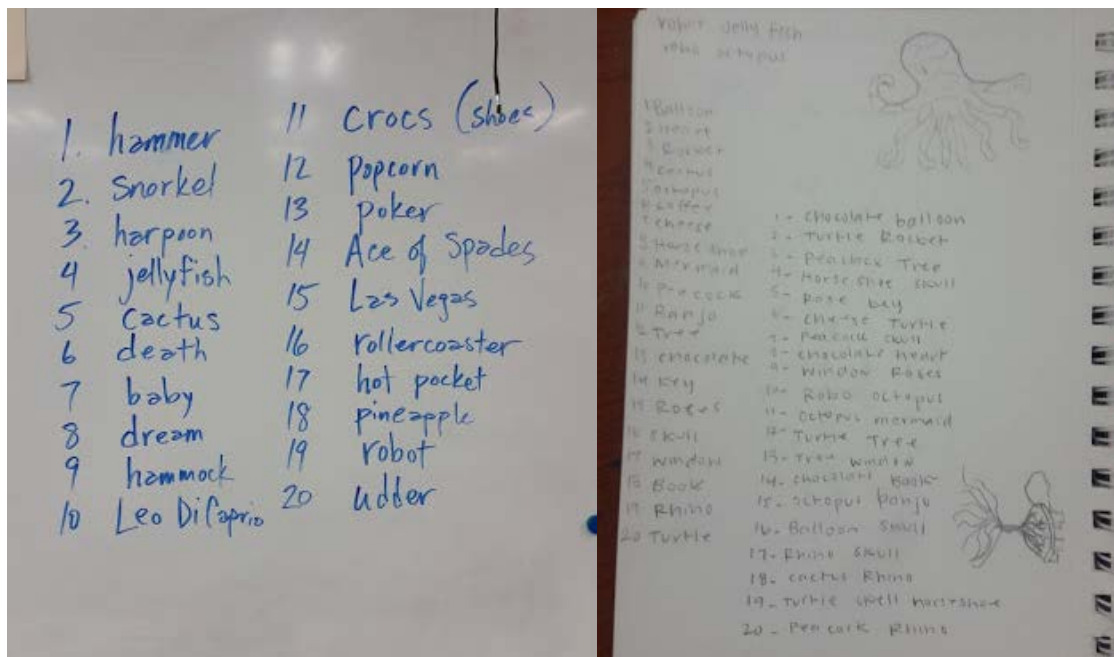 1. hammer
2. Snorkel
3. harpoon
4 jellyfish
5 cactus
6 death
7 baby
8 dream
9 hammock
10 Leo DiCaprio
11 crocs (shoes)
12 popcorn
13 poker
14 Ace of Spades
15 Las Vegas
16 rollercoaster
17 hot pocket
18 pineapple
19 robot
20 udder
robot jelly fish
robo octopus
1 Balloon
2 Heart
3 Rocket
4 cactus
5 octopus
6
7 cheese
8 Horse shoe
9 Mermaid
10 Peacock
11 Banjo
12 Tree
13 chocolate
14 Key
15 Roses
16 skull
17 window
18 Book
19 Rhino
20 Turtle
1- chocolate balloon
2- Turtle Rocket
3- Peacock Tree
4- Horse shoe skull
5- Rose key
6- cheese Turtle
7- Peacock skull
8- chocolate heart
9- window Roses
10- Robo octopus
11- octopus mermaid
12- Turtle Tree
13- Tree window
14- chocolate Book
15- octopus banjo
16- Balloon skull
17- Rhino skull
18- cactus Rhino
19- Turtle skell horseshoe
20- Peacock Rhino